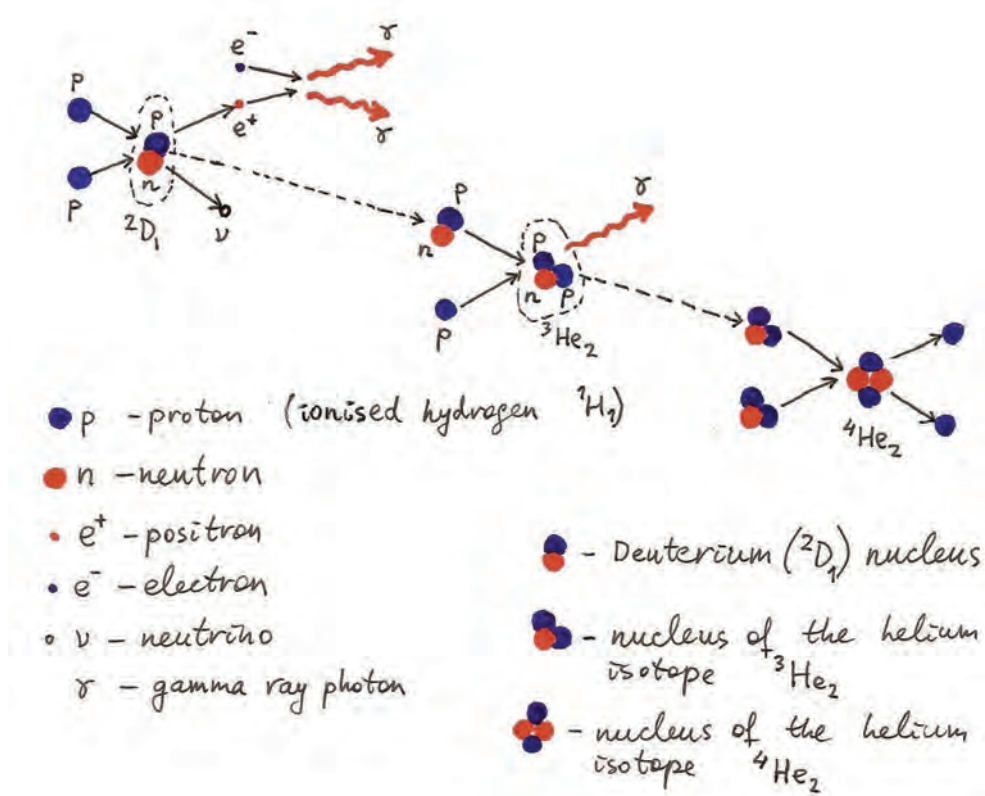 e⁻
γ
p
p
e⁺
γ
n
p
²D₁
ν
p
n
γ
p
n
p
p
³He₂
⁴He₂
p - proton (ionised hydrogen ¹H₁)
n - neutron
e⁺ - positron
e⁻ - electron
ν - neutrino
γ - gamma ray photon
- Deuterium (²D₁) nucleus
- nucleus of the helium
isotope ³He₂
- nucleus of the helium
isotope ⁴He₂